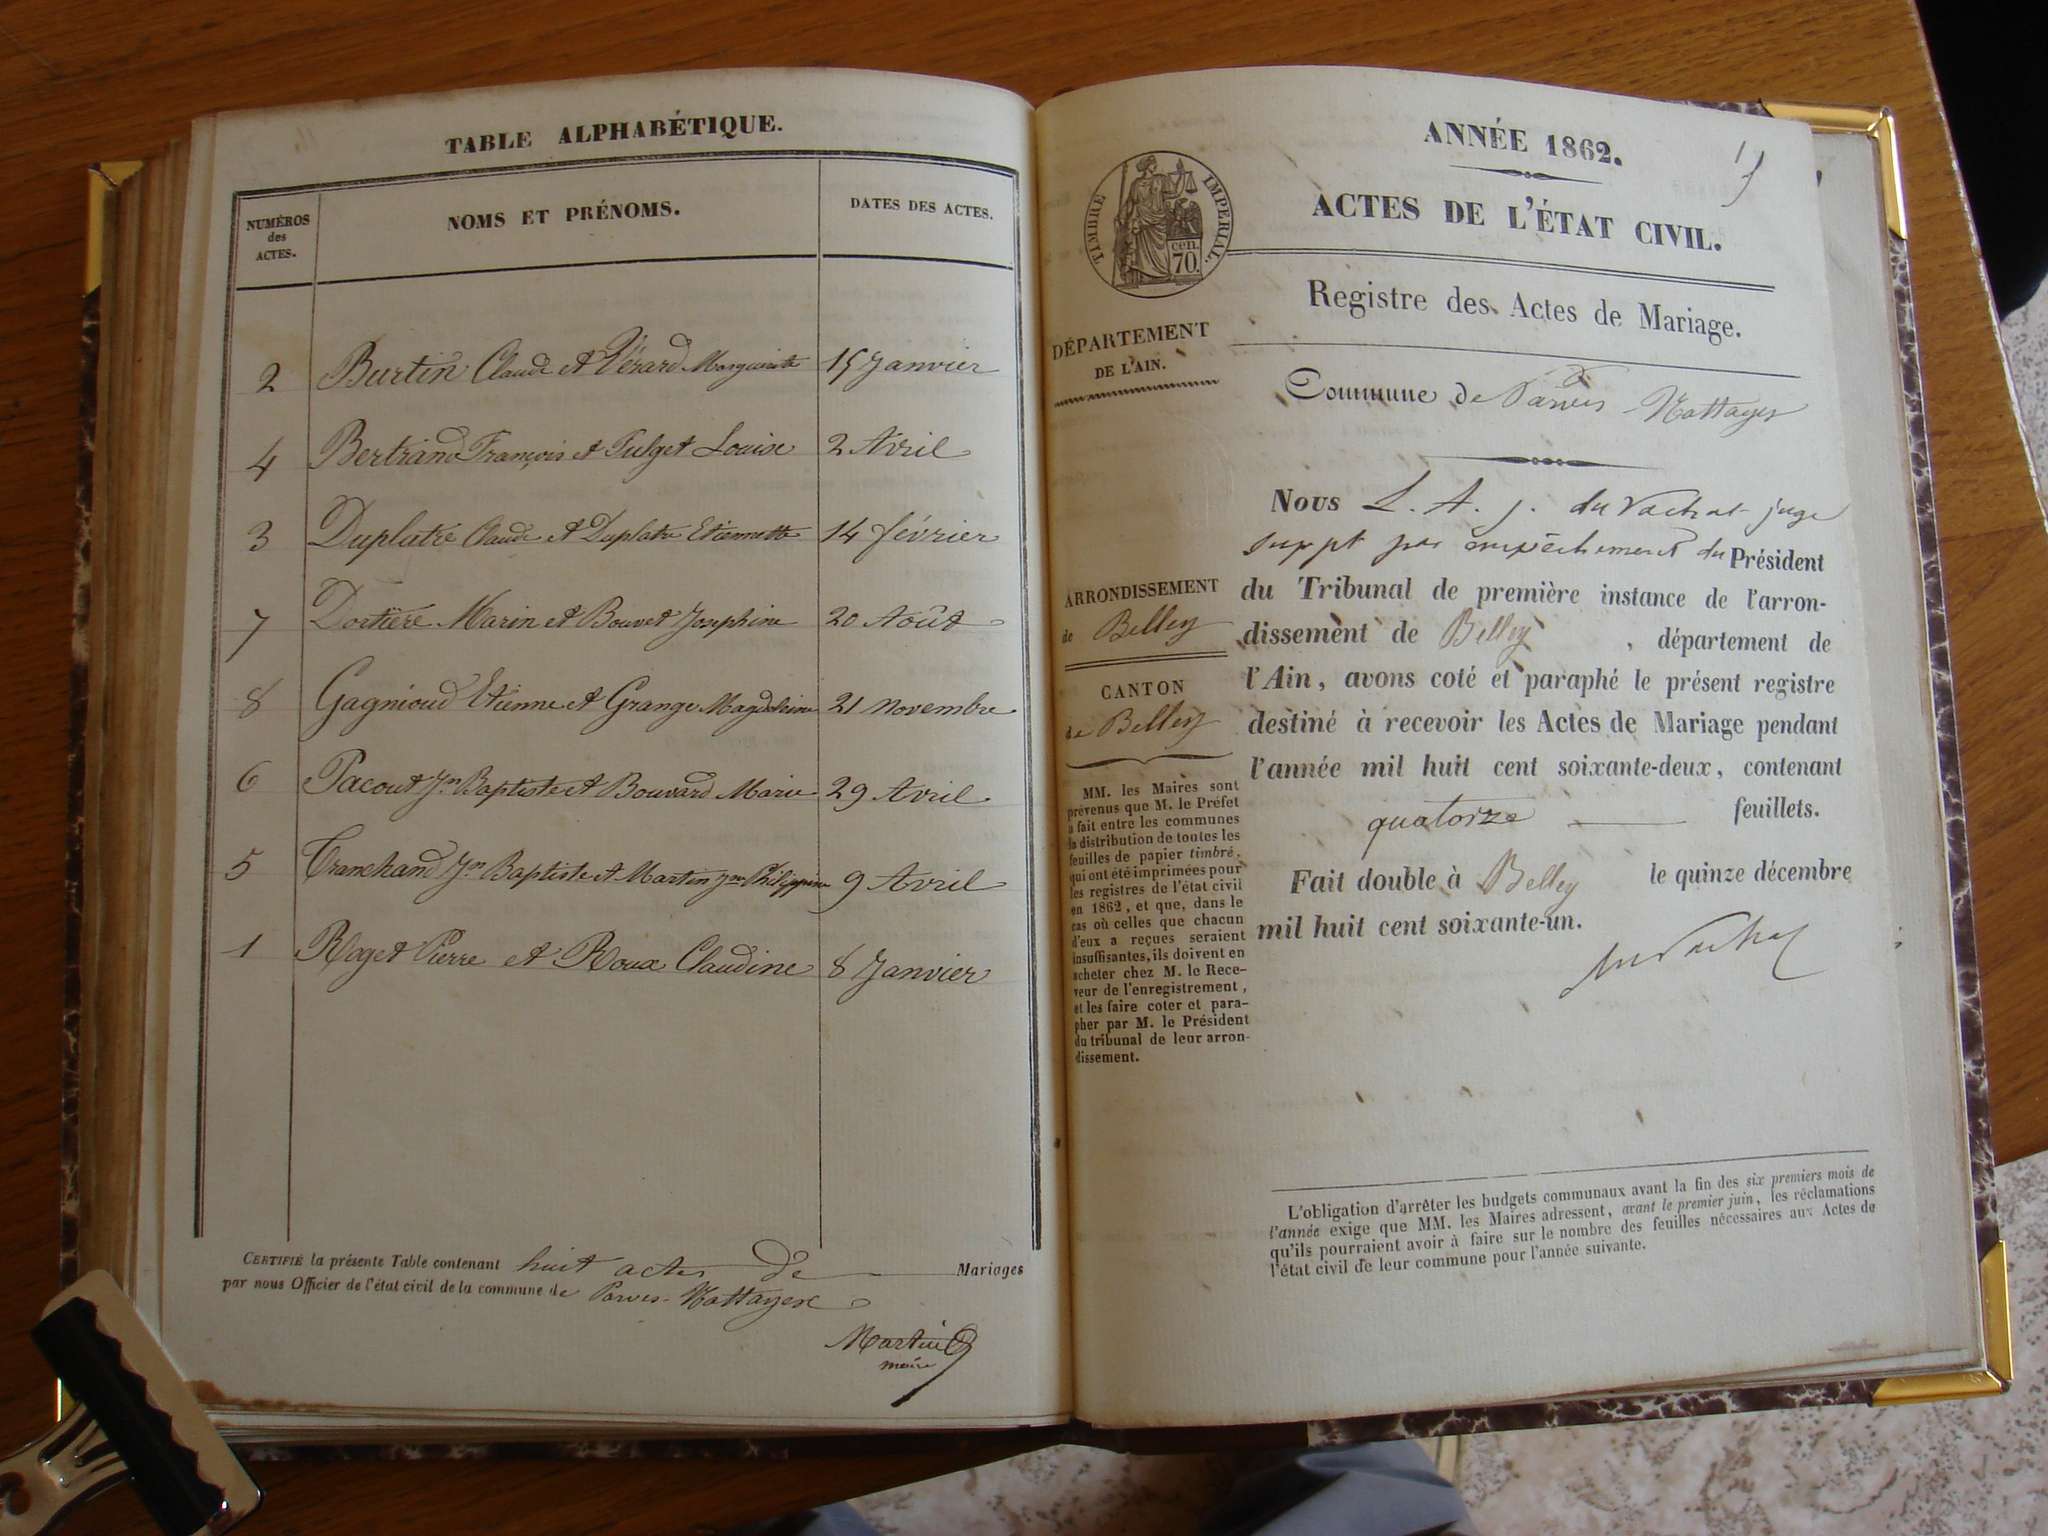 TABLE ALPHABÉTIQUE.
NUMÉROS
des
ACTES.
NOMS ET PRÉNOMS.
DATES DES ACTES.
2 Burtin Claude et Pérard Marguerite 15 Janvier
4 Bertrand François et Fulget Louise 2 Avril
3 Duplatre Claude et Duplatre Etiennette 14 février
7 Dortière Marin et Bouvet Josephine 20 Août
8 Gagnioud Etienne et Grange Magdeleine 21 novembre
6 Pacout Jn Baptiste et Bouvard Marie 29 Avril
5 Tranchand Jn Baptiste et Martin Philippine 9 Avril
1 Roget Pierre et Roux Claudine 8 Janvier
CERTIFIÉ la présente Table contenant huit actes de Mariages
par nous Officier de l'état civil de la commune de Parves-Nattages
Martin
maire
ANNÉE 1862.
TIMBRE IMPERIAL.
cen.
70.
ACTES DE L'ÉTAT CIVIL.
Registre des Actes de Mariage.
DÉPARTEMENT
DE L'AIN.
Commune de Parves-Nattages
ARRONDISSEMENT
de Belley
CANTON
de Belley
MM. les Maires sont
prévenus que M. le Préfet
a fait entre les communes
la distribution de toutes les
feuilles de papier timbré,
qui ont été imprimées pour
les registres de l'état civil
en 1862, et que, dans le
cas où celles que chacun
d'eux a reçues seraient
insuffisantes, ils doivent en
acheter chez M. le Rece-
veur de l'enregistrement,
et les faire coter et para-
pher par M. le Président
du tribunal de leur arron-
dissement.
Nous L. A. J. du Vachat juge
suppt par empêchement du Président
du Tribunal de première instance de l'arron-
dissement de Belley, département de
l'Ain, avons coté et paraphé le présent registre
destiné à recevoir les Actes de Mariage pendant
l'année mil huit cent soixante-deux, contenant
quatorze feuillets.
Fait double à Belley le quinze décembre
mil huit cent soixante-un.
du Vachat
L'obligation d'arrêter les budgets communaux avant la fin des six premiers mois de
l'année exige que MM. les Maires adressent, avant le premier juin, les réclamations
qu'ils pourraient avoir à faire sur le nombre des feuilles nécessaires aux Actes de
l'état civil de leur commune pour l'année suivante.